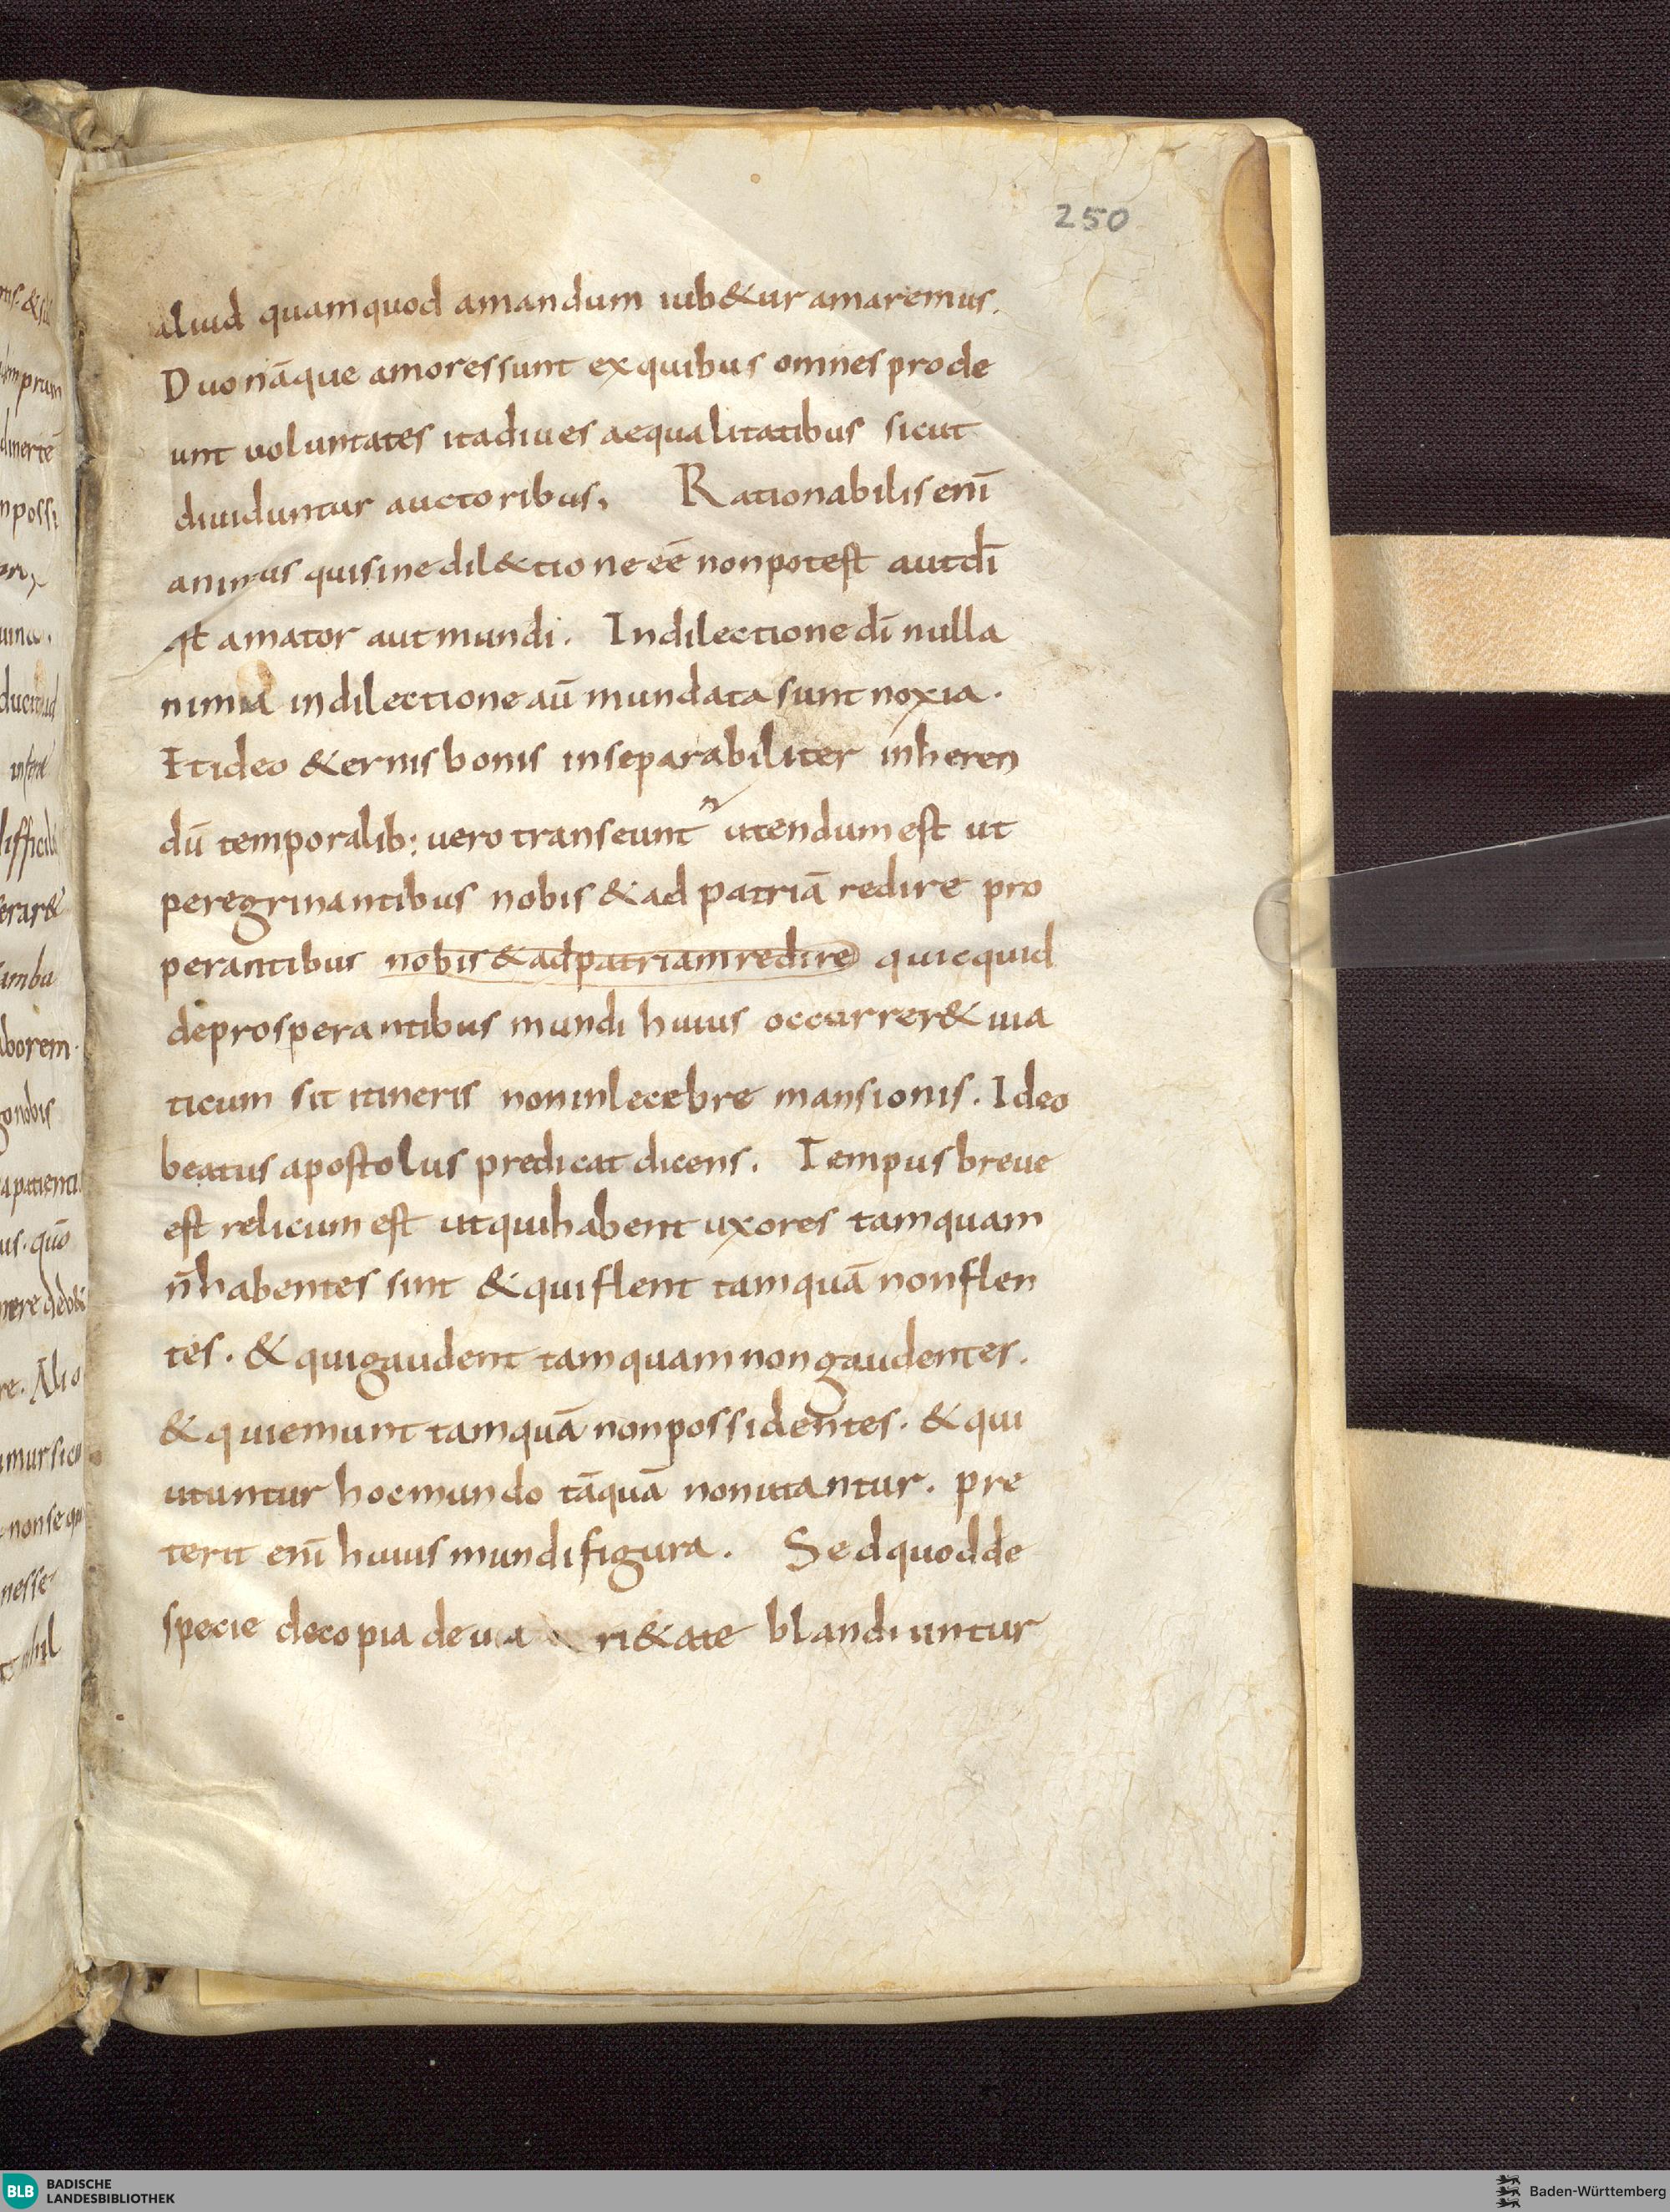 250
aliud quamquod amandum iub&ur amaremus.
Duonāque amoressunt exquibus omnesprode
unt uoluntates itadiues aequalitatibus sicut
diuiduntur auctoribus. Rationabilisenī
animus quisinedil&tione eē nonpotest autdī
st amator autmundi. Indilectionedī nulla
nimia indilectioneaū mundatasunt noxia.
Etideo &ernisbonis inseparabiliter inheren
dū temporalib: uerotranseunt n utendumest ut
peregrinantibus nobis &ad patriā redire pro
perantibus nobis&adpatriamredire quicquid
deprosperantibus mundi huius occurrer& uia
ticum sit itineris noninlecebre mansionis. Ideo
beatus apostolus predicat dicens. Tempusbreue
est relicum est utquihabent uxores tamquam
n̄habentes sint &quiflent tamquā nonflen
tes. & quigaudent tamquamnongaudentes.
&quiemunt tamquānonpossidentes. &qui
utuntur hocmundo tāquā nonutantur. pre
terit enī huius mundifigura. Sedquodde
specie decopia deuia ri&ate blandiuntur
BLB BADISCHE
LANDESBIBLIOTHEK
Baden-Württemberg